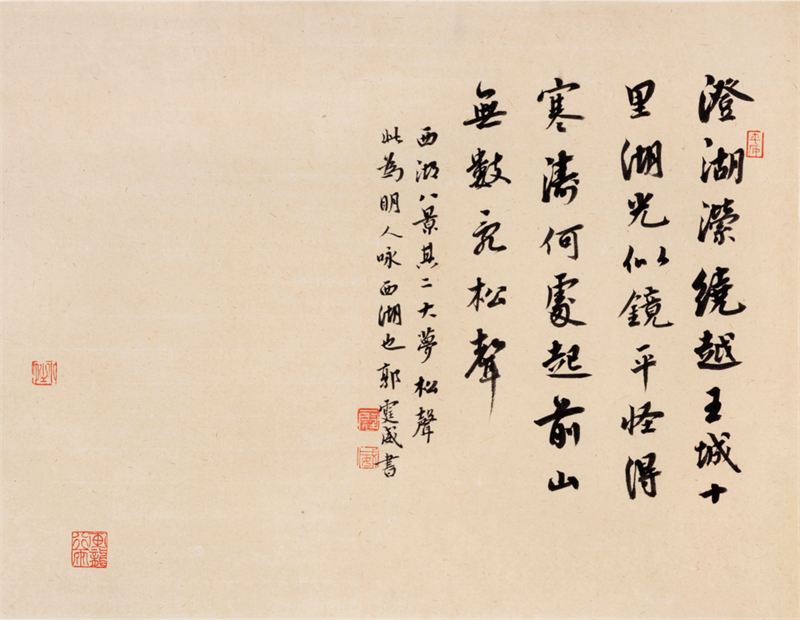 澄湖瀠繞越王城十
里湖光似鏡平怪得
寒濤何處起前山
無數亂松聲
西湖八景其二大夢松聲
此為明人咏西湖也郭書